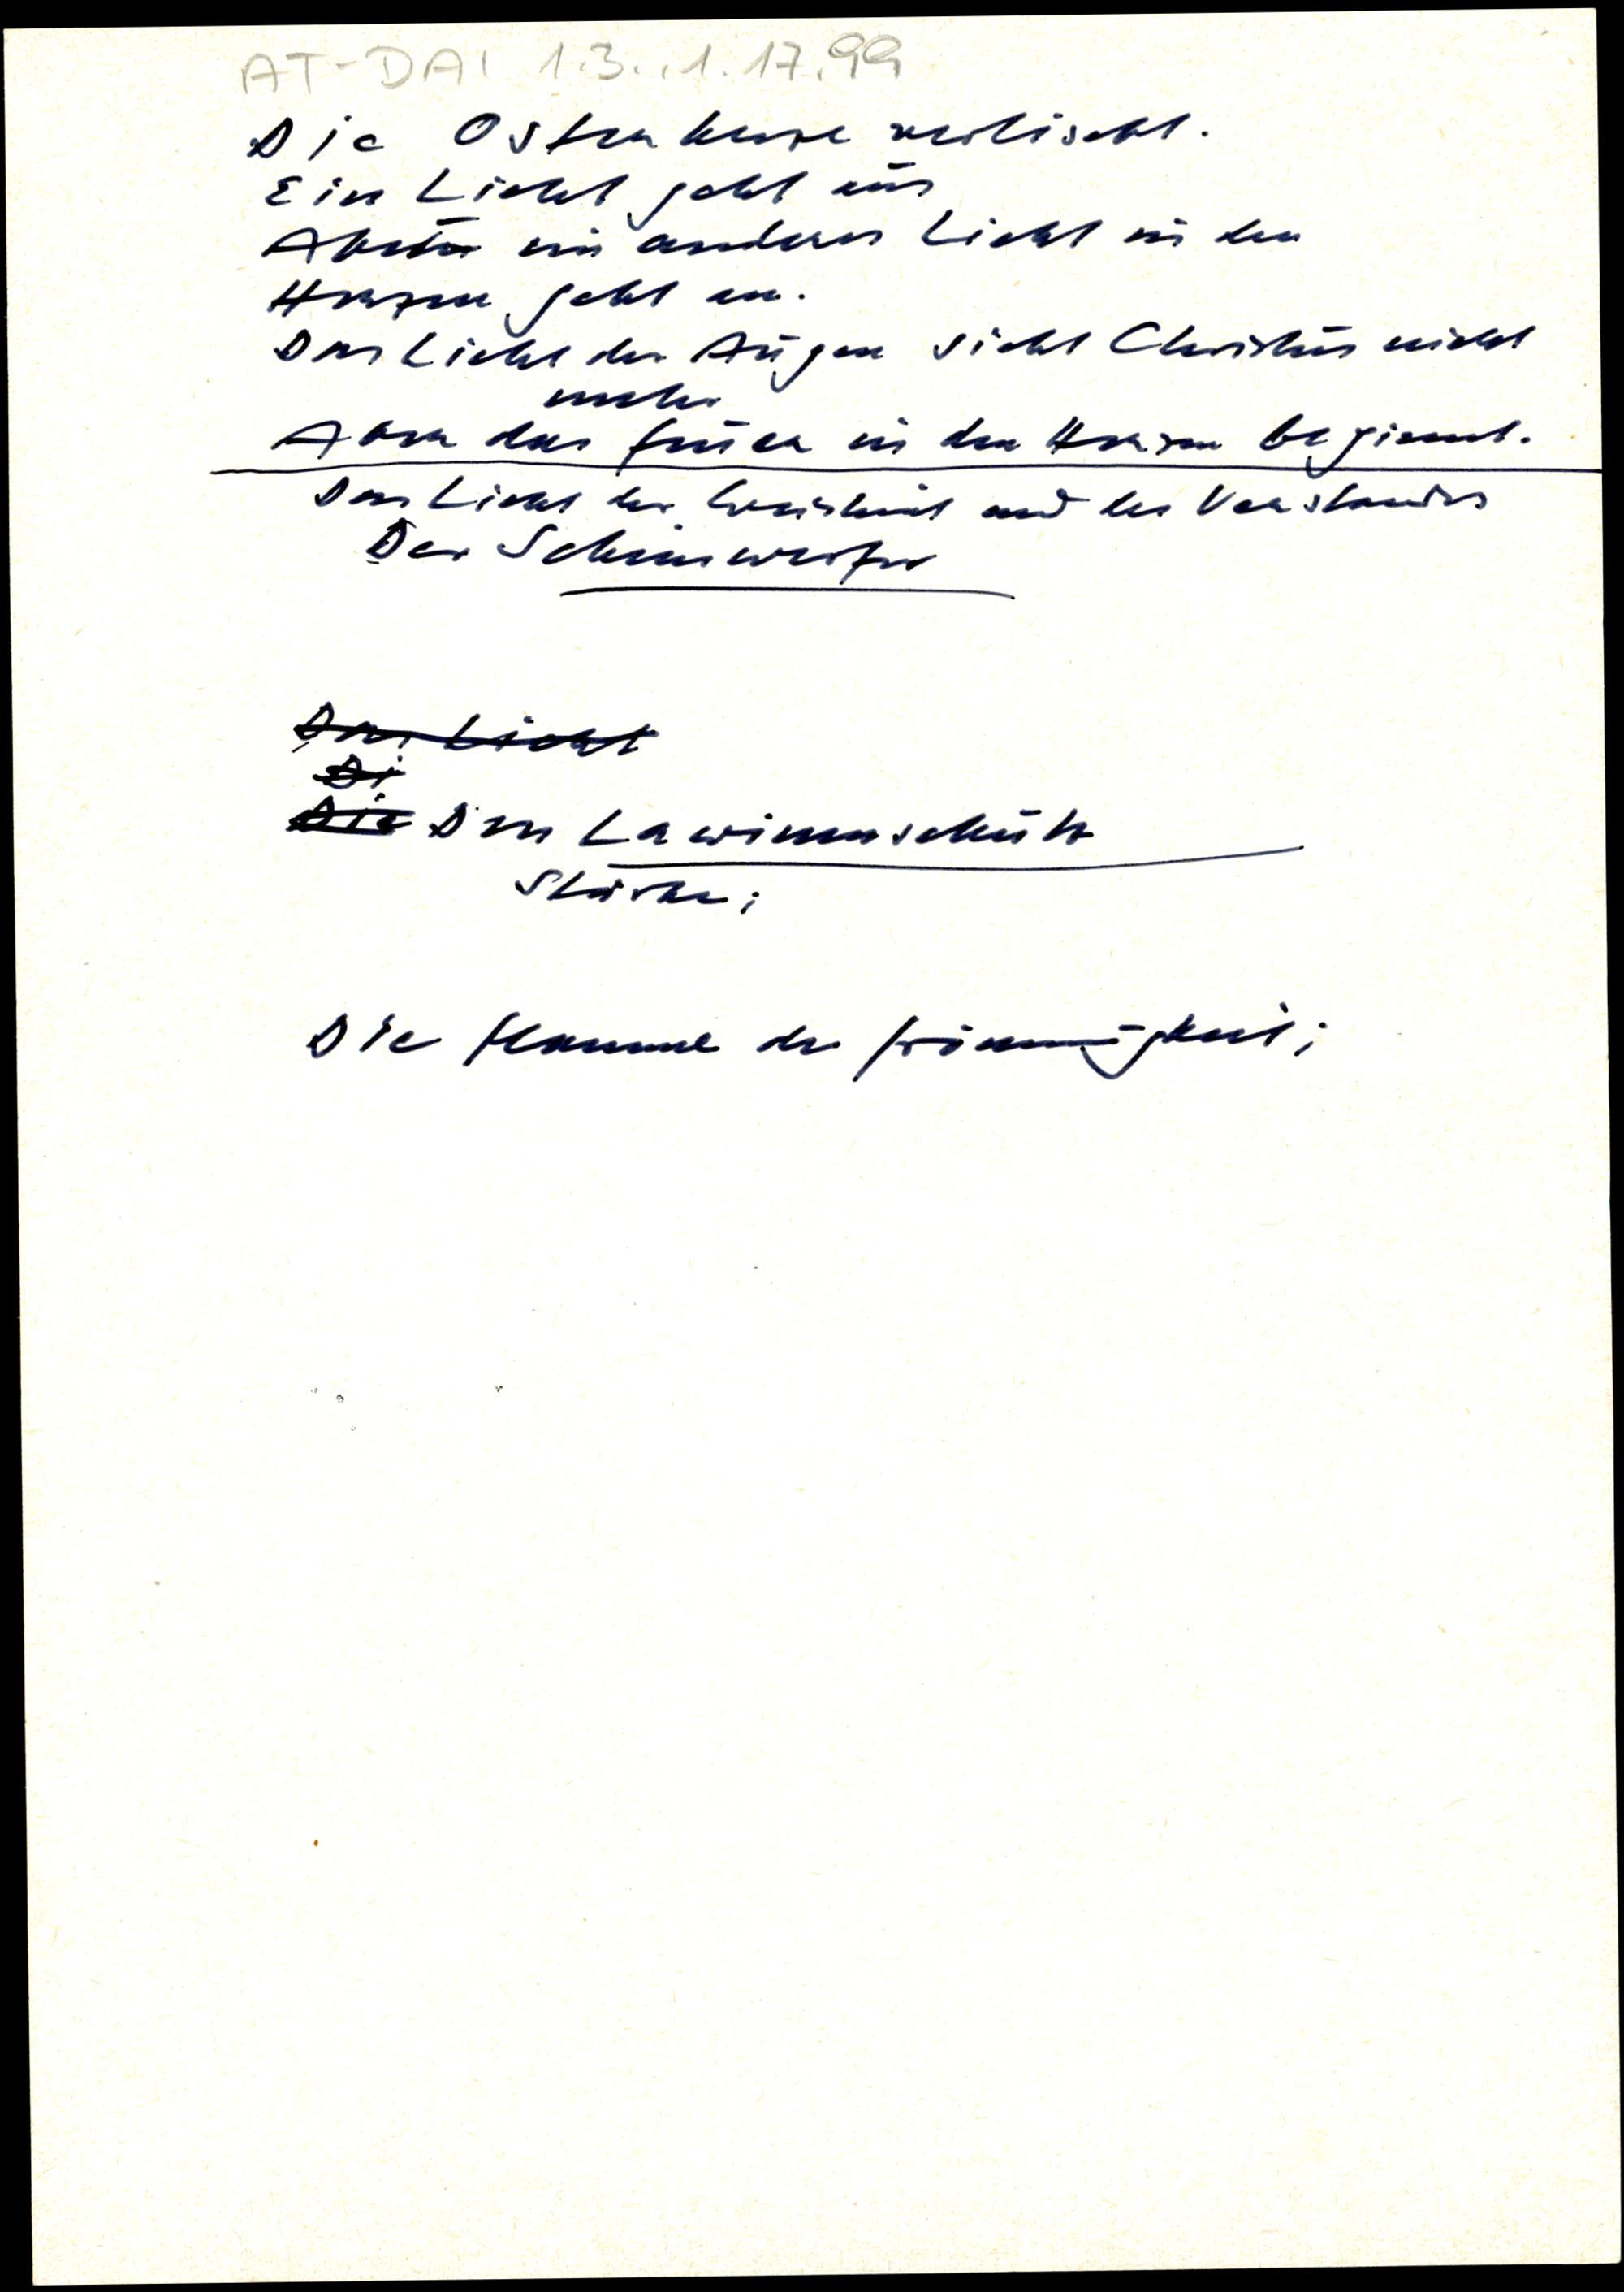 AT-DAI 1.3.,1.17.99
Die Osterkerze verlischt.
Ein Licht geht aus
Aber ein anderes Licht in den
Herzen geht an.
Das Licht der Augen sieht Christus nicht
mehr
Aber das Feuer in den Herzen beginnt.
Das Licht der Weisheit und des Verstandes
Der Scheinwerfer
Das Licht
Di
Die Der Lawinenschutz
Stärke;
Die Flamme der Frömmigkeit;